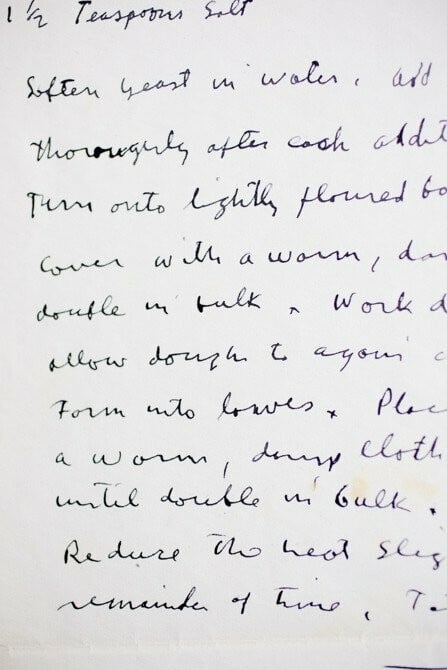 1 1/2 Teaspoons Salt
Soften yeast in water. add
thoroughly after each addit
Turn onto lightly floured bo
Cover with a warm, da
double in bulk. Work d
allow dough to again
Form into loaves. Plac
a warm, damp cloth
until double in bulk.
Reduce the heat slig
remainder of time. T